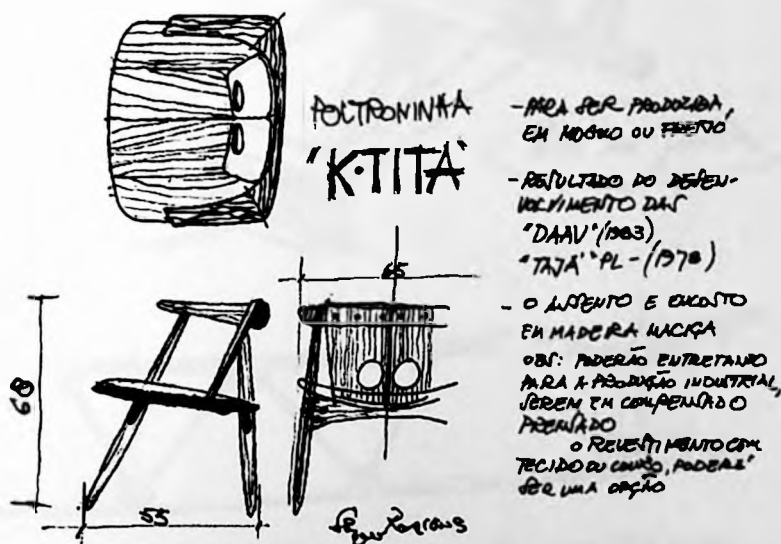 POLTRONINHA
"K·TITA"
- PARA SER PRODUZIDA,
EM MOGNO OU FREIJO
- RESULTADO DO DESEN-
VOLVIMENTO DAS
"DAAV" (1983)
"TAJÁ" PL - (1978)
- O ASSENTO E ENCOSTO
EM MADEIRA MACIÇA
OBS: PODERÃO ENTRETANTO
PARA A PRODUÇÃO INDUSTRIAL,
SEREM EM COMPENSADO
PRENSADO
O REVESTIMENTO COM
TECIDO OU COURO, PODERÁ
SER UMA OPÇÃO
65
68
55
Sergio Rodrigues